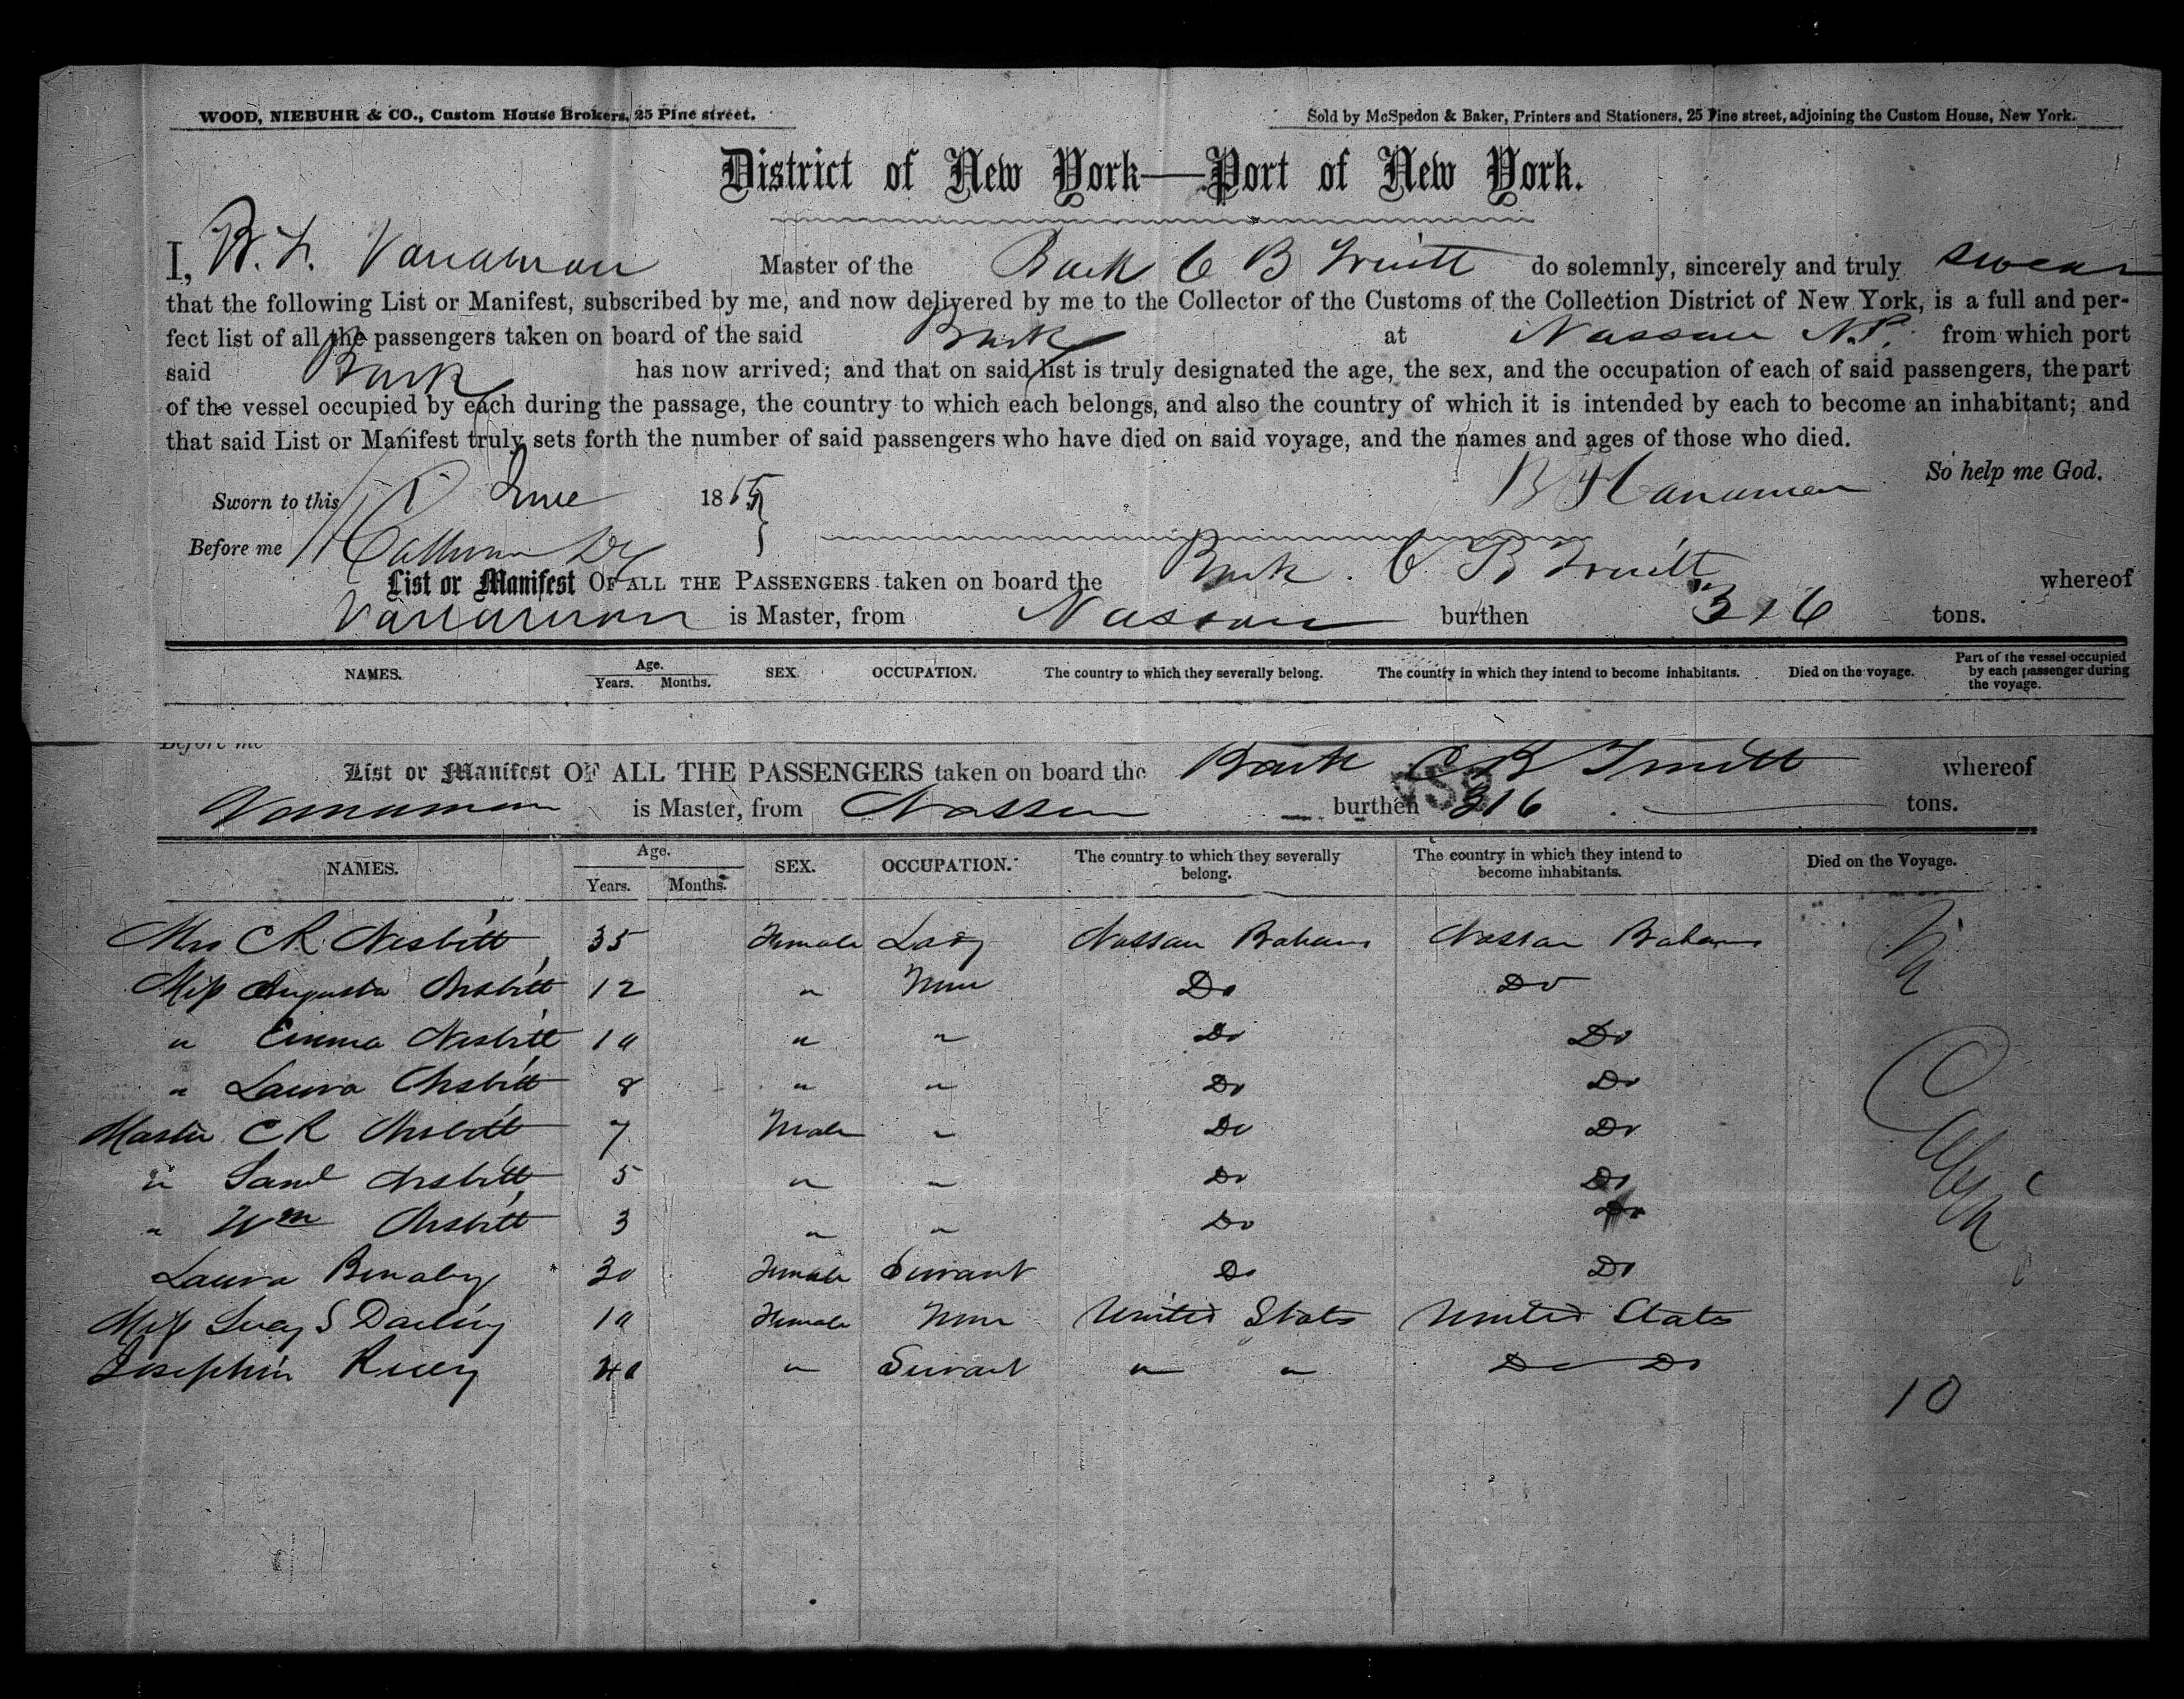 WOOD, NIEBUHR & CO., Custom House Brokers, 25 Pine street.
Sold by McSpedon & Baker, Printers and Stationers, 25 Pine street, adjoining the Custom House, New York.
District of New York—Port of New York.
I, Vanaman Master of the Bark C B Truitt do solemnly, sincerely and truly swear
that the following List or Manifest, subscribed by me, and now delivered by me to the Collector of the Customs of the Collection District of New York, is a full and per-
fect list of all the passengers taken on board of the said Bark at Nassau N.P. from which port
said Bark has now arrived; and that on said list is truly designated the age, the sex, and the occupation of each of said passengers, the part
of the vessel occupied by each during the passage, the country to which each belongs, and also the country of which it is intended by each to become an inhabitant; and
that said List or Manifest truly sets forth the number of said passengers who have died on said voyage, and the names and ages of those who died.
So help me God.
Sworn to this June 1865 Vanaman
Before me
List or Manifest OF ALL THE PASSENGERS taken on board the Bark C B Truitt whereof
Vanaman is Master, from Nassau burthen 316 tons.
NAMES. Age. Years. Months. SEX. OCCUPATION. The country to which they severally belong. The country in which they intend to become inhabitants. Died on the voyage. Part of the vessel occupied by each passenger during the voyage.
Before me
List or Manifest OF ALL THE PASSENGERS taken on board the Bark C B Truitt whereof
Vanaman is Master, from Nassau burthen 316 tons.
NAMES. Age. Years. Months. SEX. OCCUPATION. The country to which they severally belong. The country in which they intend to become inhabitants. Died on the Voyage.
Mrs C R Nesbitt 35 Female Lady Nassau Bahams Nassau Bahams
Miss Augusta Nesbitt 12 " None Do Do
" Emma Nesbitt 10 " " Do Do
" Laura Nesbitt 8 " " Do Do
Master C R Nesbitt 7 Male " Do Do
" Saml Nesbitt 5 " " Do Do
" Wm Nesbitt 3 " " Do Do
Laura 30 Female Servant Do Do
Miss Lucy S Darling 10 Female None United States United States
Josephin 40 " Servant " " Do Do
10